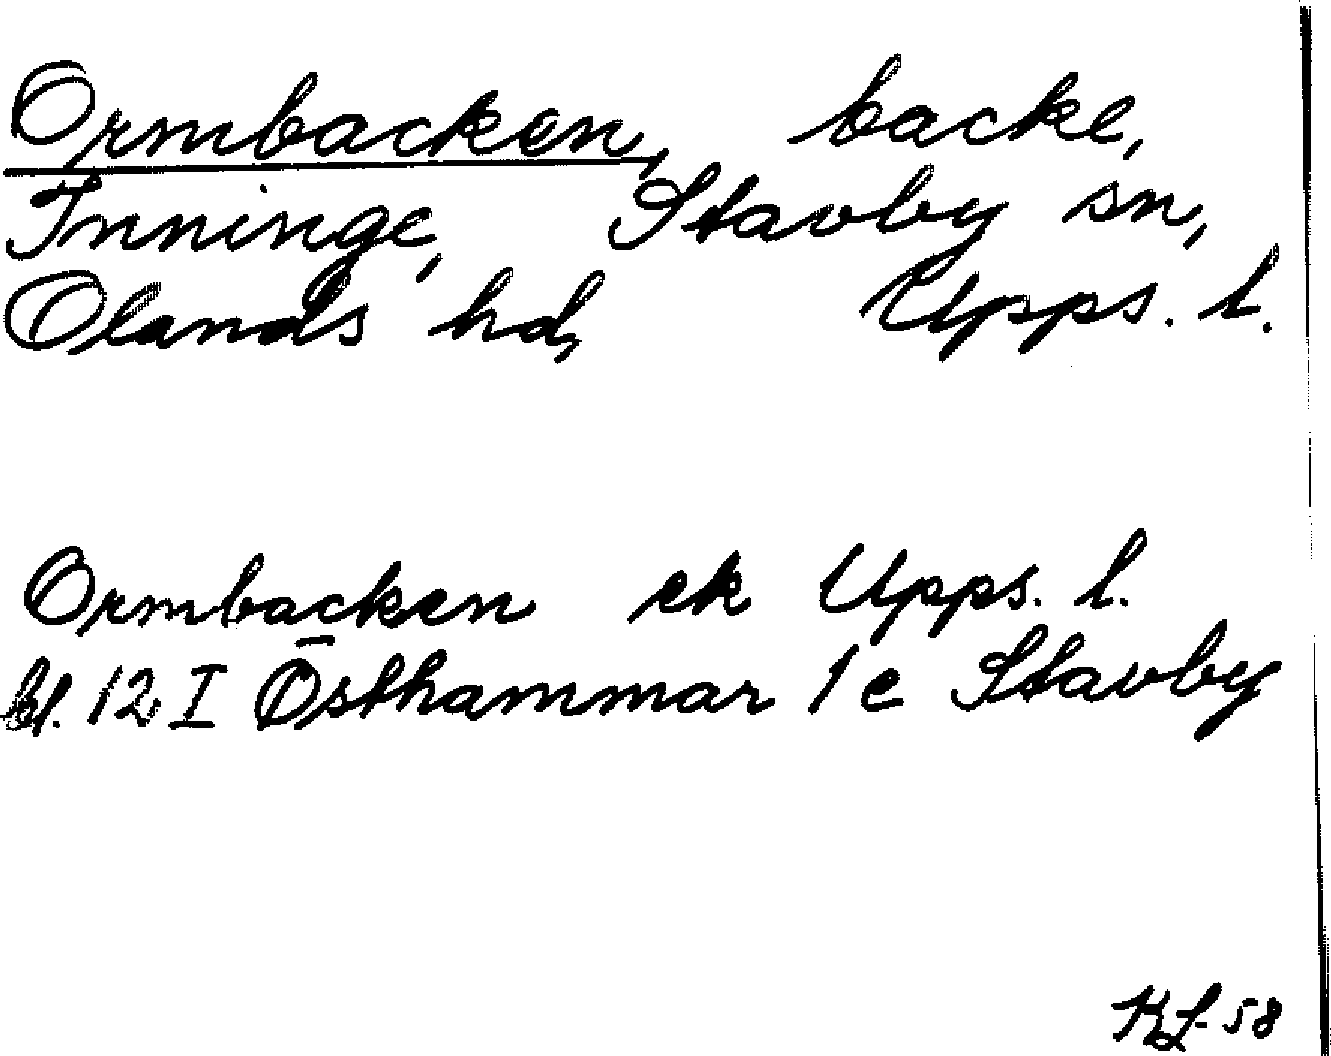 Ormbacken, backe,
Inninge, Stavby sn,
Olands hd, Upps. l.
Ormbacken ek Upps. l.
bl. 12 I Östhammar 1 e Stavby
KL-58